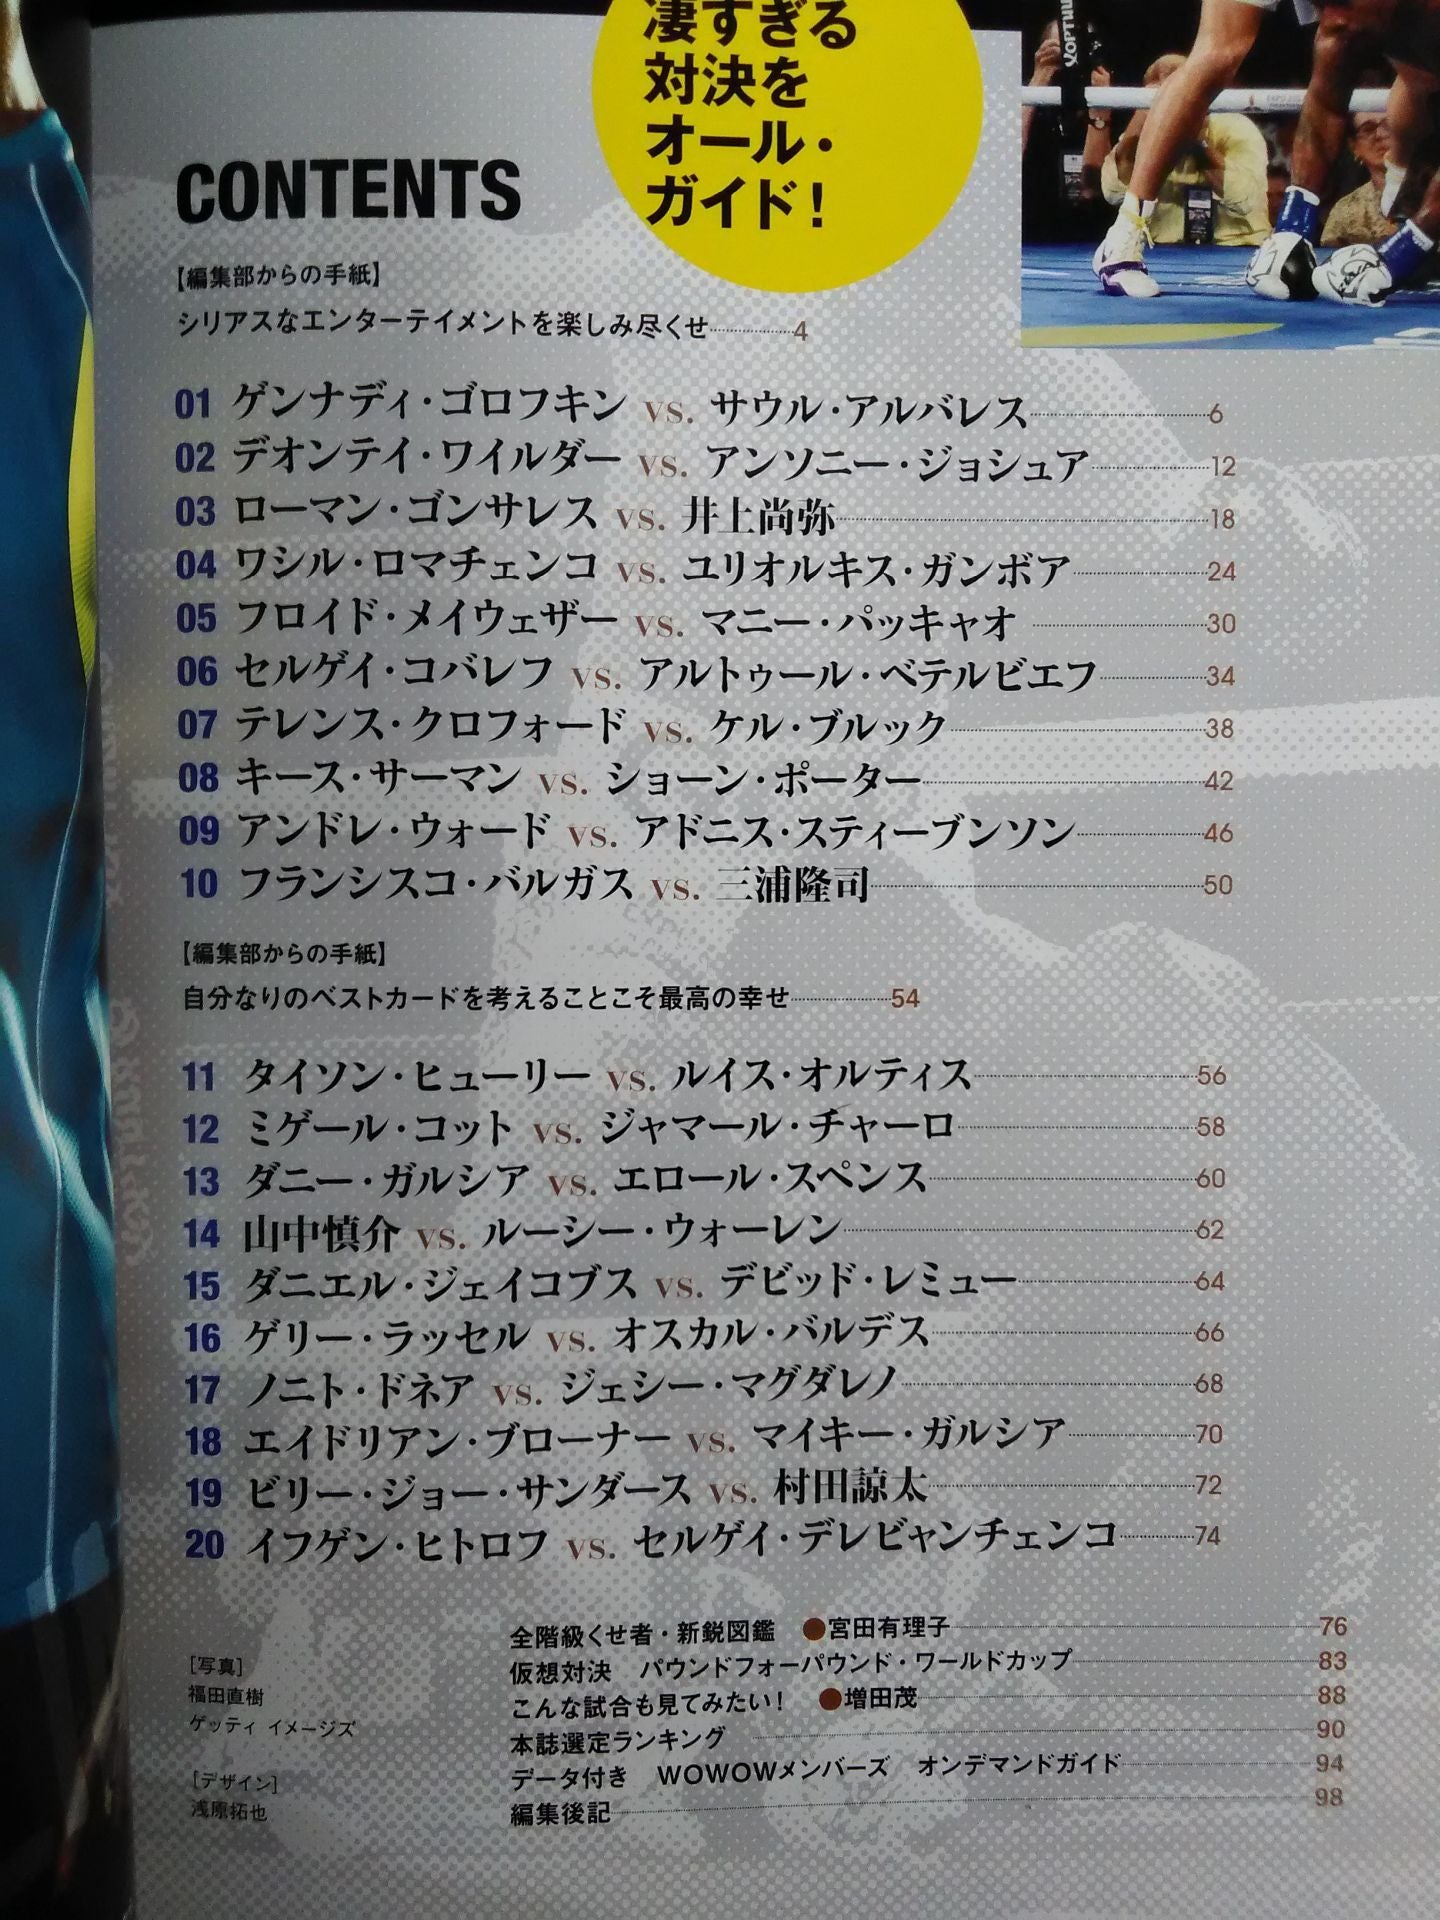 凄すぎる
対決を
オール・
ガイド!
CONTENTS
【編集部からの手紙】
シリアスなエンターテイメントを楽しみ尽くせ 4
01 ゲンナディ・ゴロフキン vs. サウル・アルバレス 6
02 デオンテイ・ワイルダー vs. アンソニー・ジョシュア 12
03 ローマン・ゴンサレス vs. 井上尚弥 18
04 ワシル・ロマチェンコ vs. ユリオルキス・ガンボア 24
05 フロイド・メイウェザー vs. マニー・パッキャオ 30
06 セルゲイ・コバレフ vs. アルトゥール・ベテルビエフ 34
07 テレンス・クロフォード vs. ケル・ブルック 38
08 キース・サーマン vs. ショーン・ポーター 42
09 アンドレ・ウォード vs. アドニス・スティーブンソン 46
10 フランシスコ・バルガス vs. 三浦隆司 50
【編集部からの手紙】
自分なりのベストカードを考えることこそ最高の幸せ 54
11 タイソン・ヒューリー vs. ルイス・オルティス 56
12 ミゲール・コット vs. ジャマール・チャーロ 58
13 ダニー・ガルシア vs. エロール・スペンス 60
14 山中慎介 vs. ルーシー・ウォーレン 62
15 ダニエル・ジェイコブス vs. デビッド・レミュー 64
16 ゲリー・ラッセル vs. オスカル・バルデス 66
17 ノニト・ドネア vs. ジェシー・マグダレノ 68
18 エイドリアン・ブローナー vs. マイキー・ガルシア 70
19 ビリー・ジョー・サンダース vs. 村田諒太 72
20 イフゲン・ヒトロフ vs. セルゲイ・デレビャンチェンコ 74
全階級くせ者・新鋭図鑑 ●宮田有理子 76
仮想対決 パウンドフォーパウンド・ワールドカップ 83
こんな試合も見てみたい! ●増田茂 88
本誌選定ランキング 90
データ付き WOWOWメンバーズ オンデマンドガイド 94
編集後記 98
[写真]
福田直樹
ゲッティ イメージズ
[デザイン]
浅原拓也